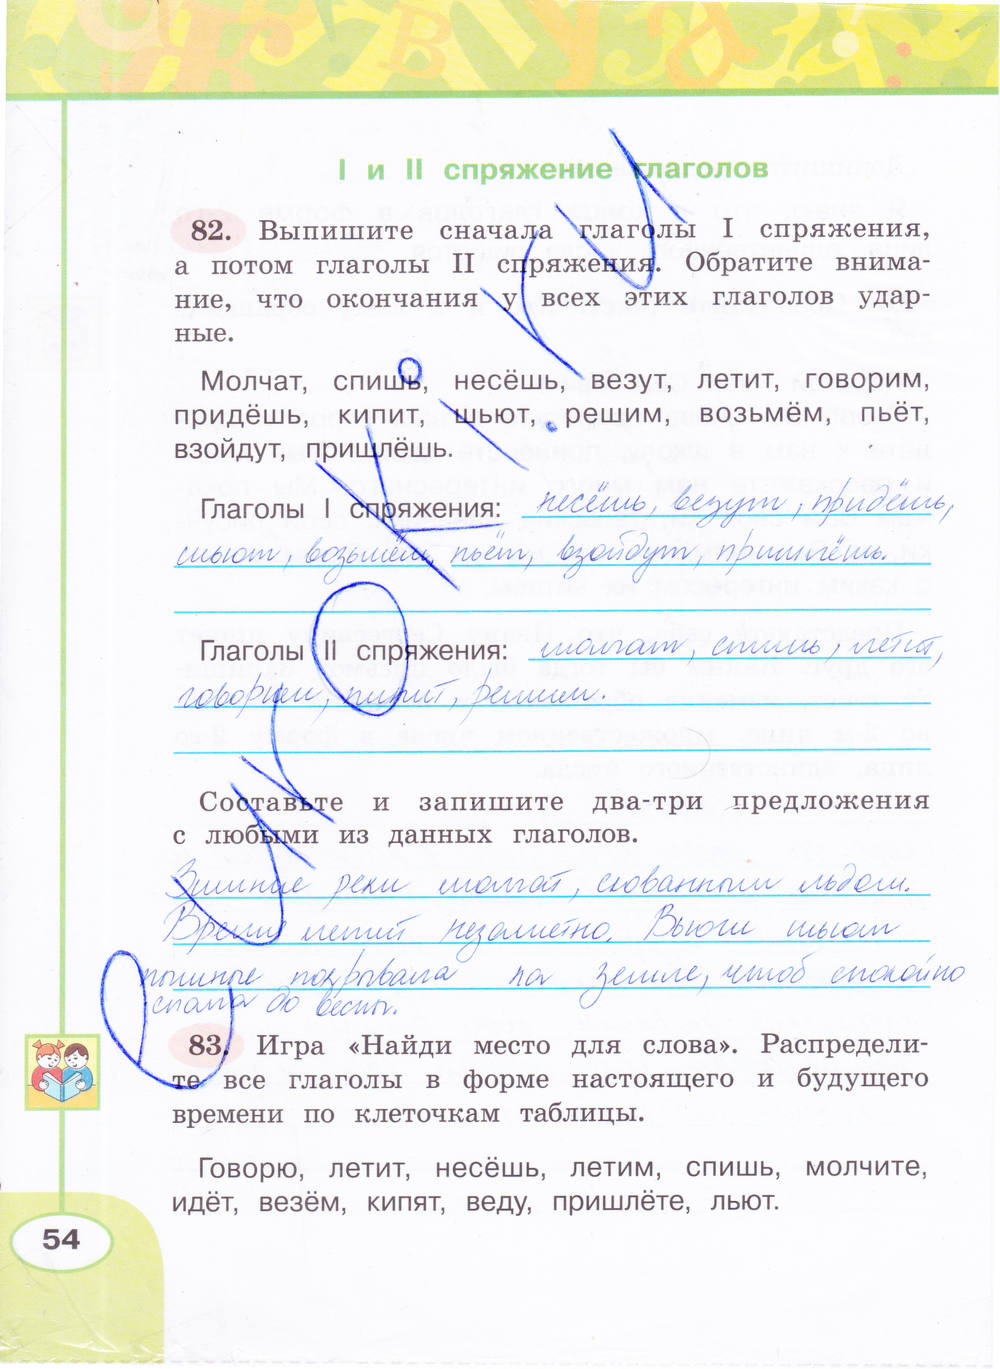 I и II спряжение глаголов
82. Выпишите сначала глаголы I спряжения,
а потом глаголы II спряжения. Обратите внима-
ние, что окончания у всех этих глаголов удар-
ные.
Молчат, спишь, несёшь, везут, летит, говорим,
придёшь, кипит, шьют, решим, возьмём, пьёт,
взойдут, пришлёшь.
Глаголы I спряжения: несёшь, везут, придёшь,
шьют, возьмём, пьёт, взойдут, пришлёшь.
Глаголы II спряжения: молчат, спишь, летит,
говорим, кипит, решим.
Составьте и запишите два-три предложения
с любыми из данных глаголов.
Зимние реки молчат, скованным льдом.
Время летит незаметно. Вьюги шьют
пышные покрывала на земле, чтоб спокойно
спала до весны.
83. Игра «Найди место для слова». Распредели-
те все глаголы в форме настоящего и будущего
времени по клеточкам таблицы.
Говорю, летит, несёшь, летим, спишь, молчите,
идёт, везём, кипят, веду, пришлёте, льют.
54